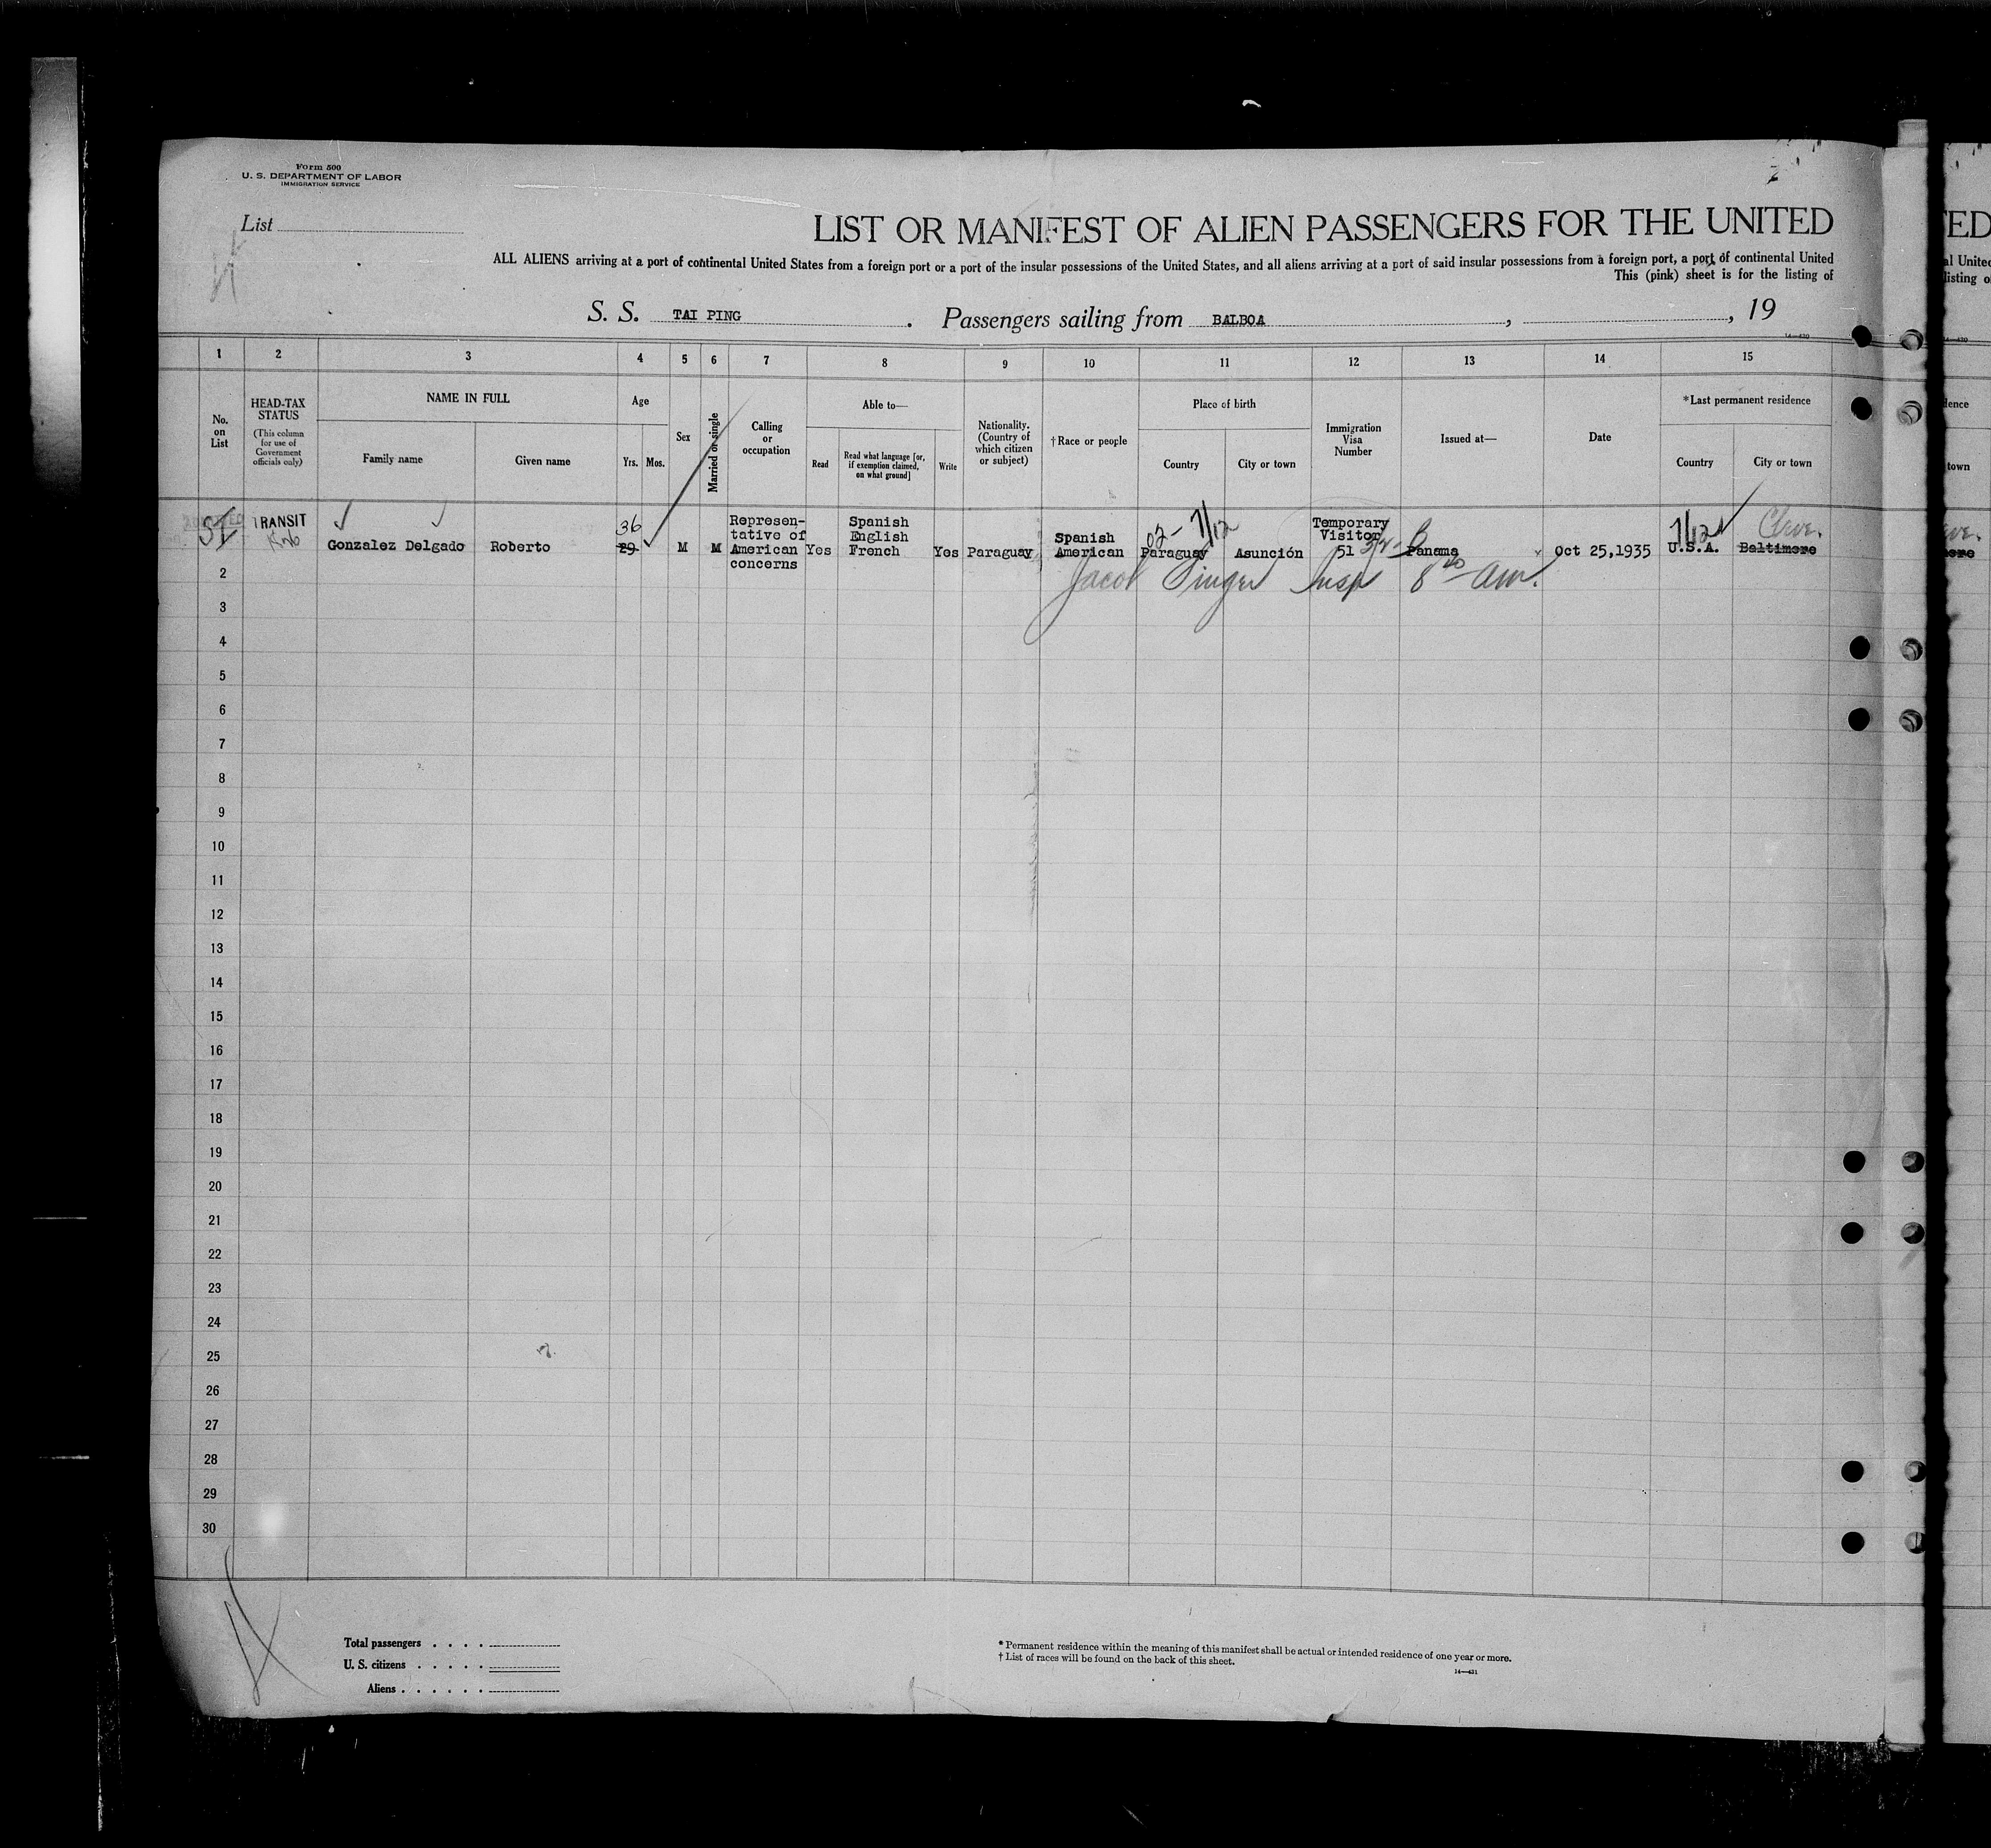 Form 500
U. S. DEPARTMENT OF LABOR
IMMIGRATION SERVICE
List
LIST OR MANIFEST OF ALIEN PASSENGERS FOR THE UNITED
ALL ALIENS arriving at a port of continental United States from a foreign port or a port of the insular possessions of the United States, and all aliens arriving at a port of said insular possessions from a foreign port, a port of continental United
This (pink) sheet is for the listing of
S. S. TAI PING. Passengers sailing from BALBOA, , 19
14—430
1 2 3 4 5 6 7 8 9 10 11 12 13 14 15
No. on List
HEAD-TAX STATUS
(This column for use of Government officials only)
NAME IN FULL
Family name
Given name
Age
Yrs. Mos.
Sex
Married or single
Calling or occupation
Able to—
Read
Read what language [or, if exemption claimed, on what ground]
Write
Nationality. (Country of which citizen or subject)
†Race or people
Place of birth
Country
City or town
Immigration Visa Number
Issued at—
Date
*Last permanent residence
Country
City or town
TRANSIT
Gonzalez Delgado
Roberto
36
29
M
M
Represen-
tative of
American
concerns
Yes
Spanish
English
French
Yes
Paraguay
Spanish
American
02- 7/12
Paraguay
Asunción
Temporary
Visitor
51
Panama
Oct 25,1935
7/12
U.S.A.
Cleve.
Baltimore
Jacob Singer Insp 8 am.
2
3
4
5
6
7
8
9
10
11
12
13
14
15
16
17
18
19
20
21
22
23
24
25
26
27
28
29
30
Total passengers . . . .
U. S. citizens . . . . .
Aliens . . . . . .
* Permanent residence within the meaning of this manifest shall be actual or intended residence of one year or more.
† List of races will be found on the back of this sheet.
14—431